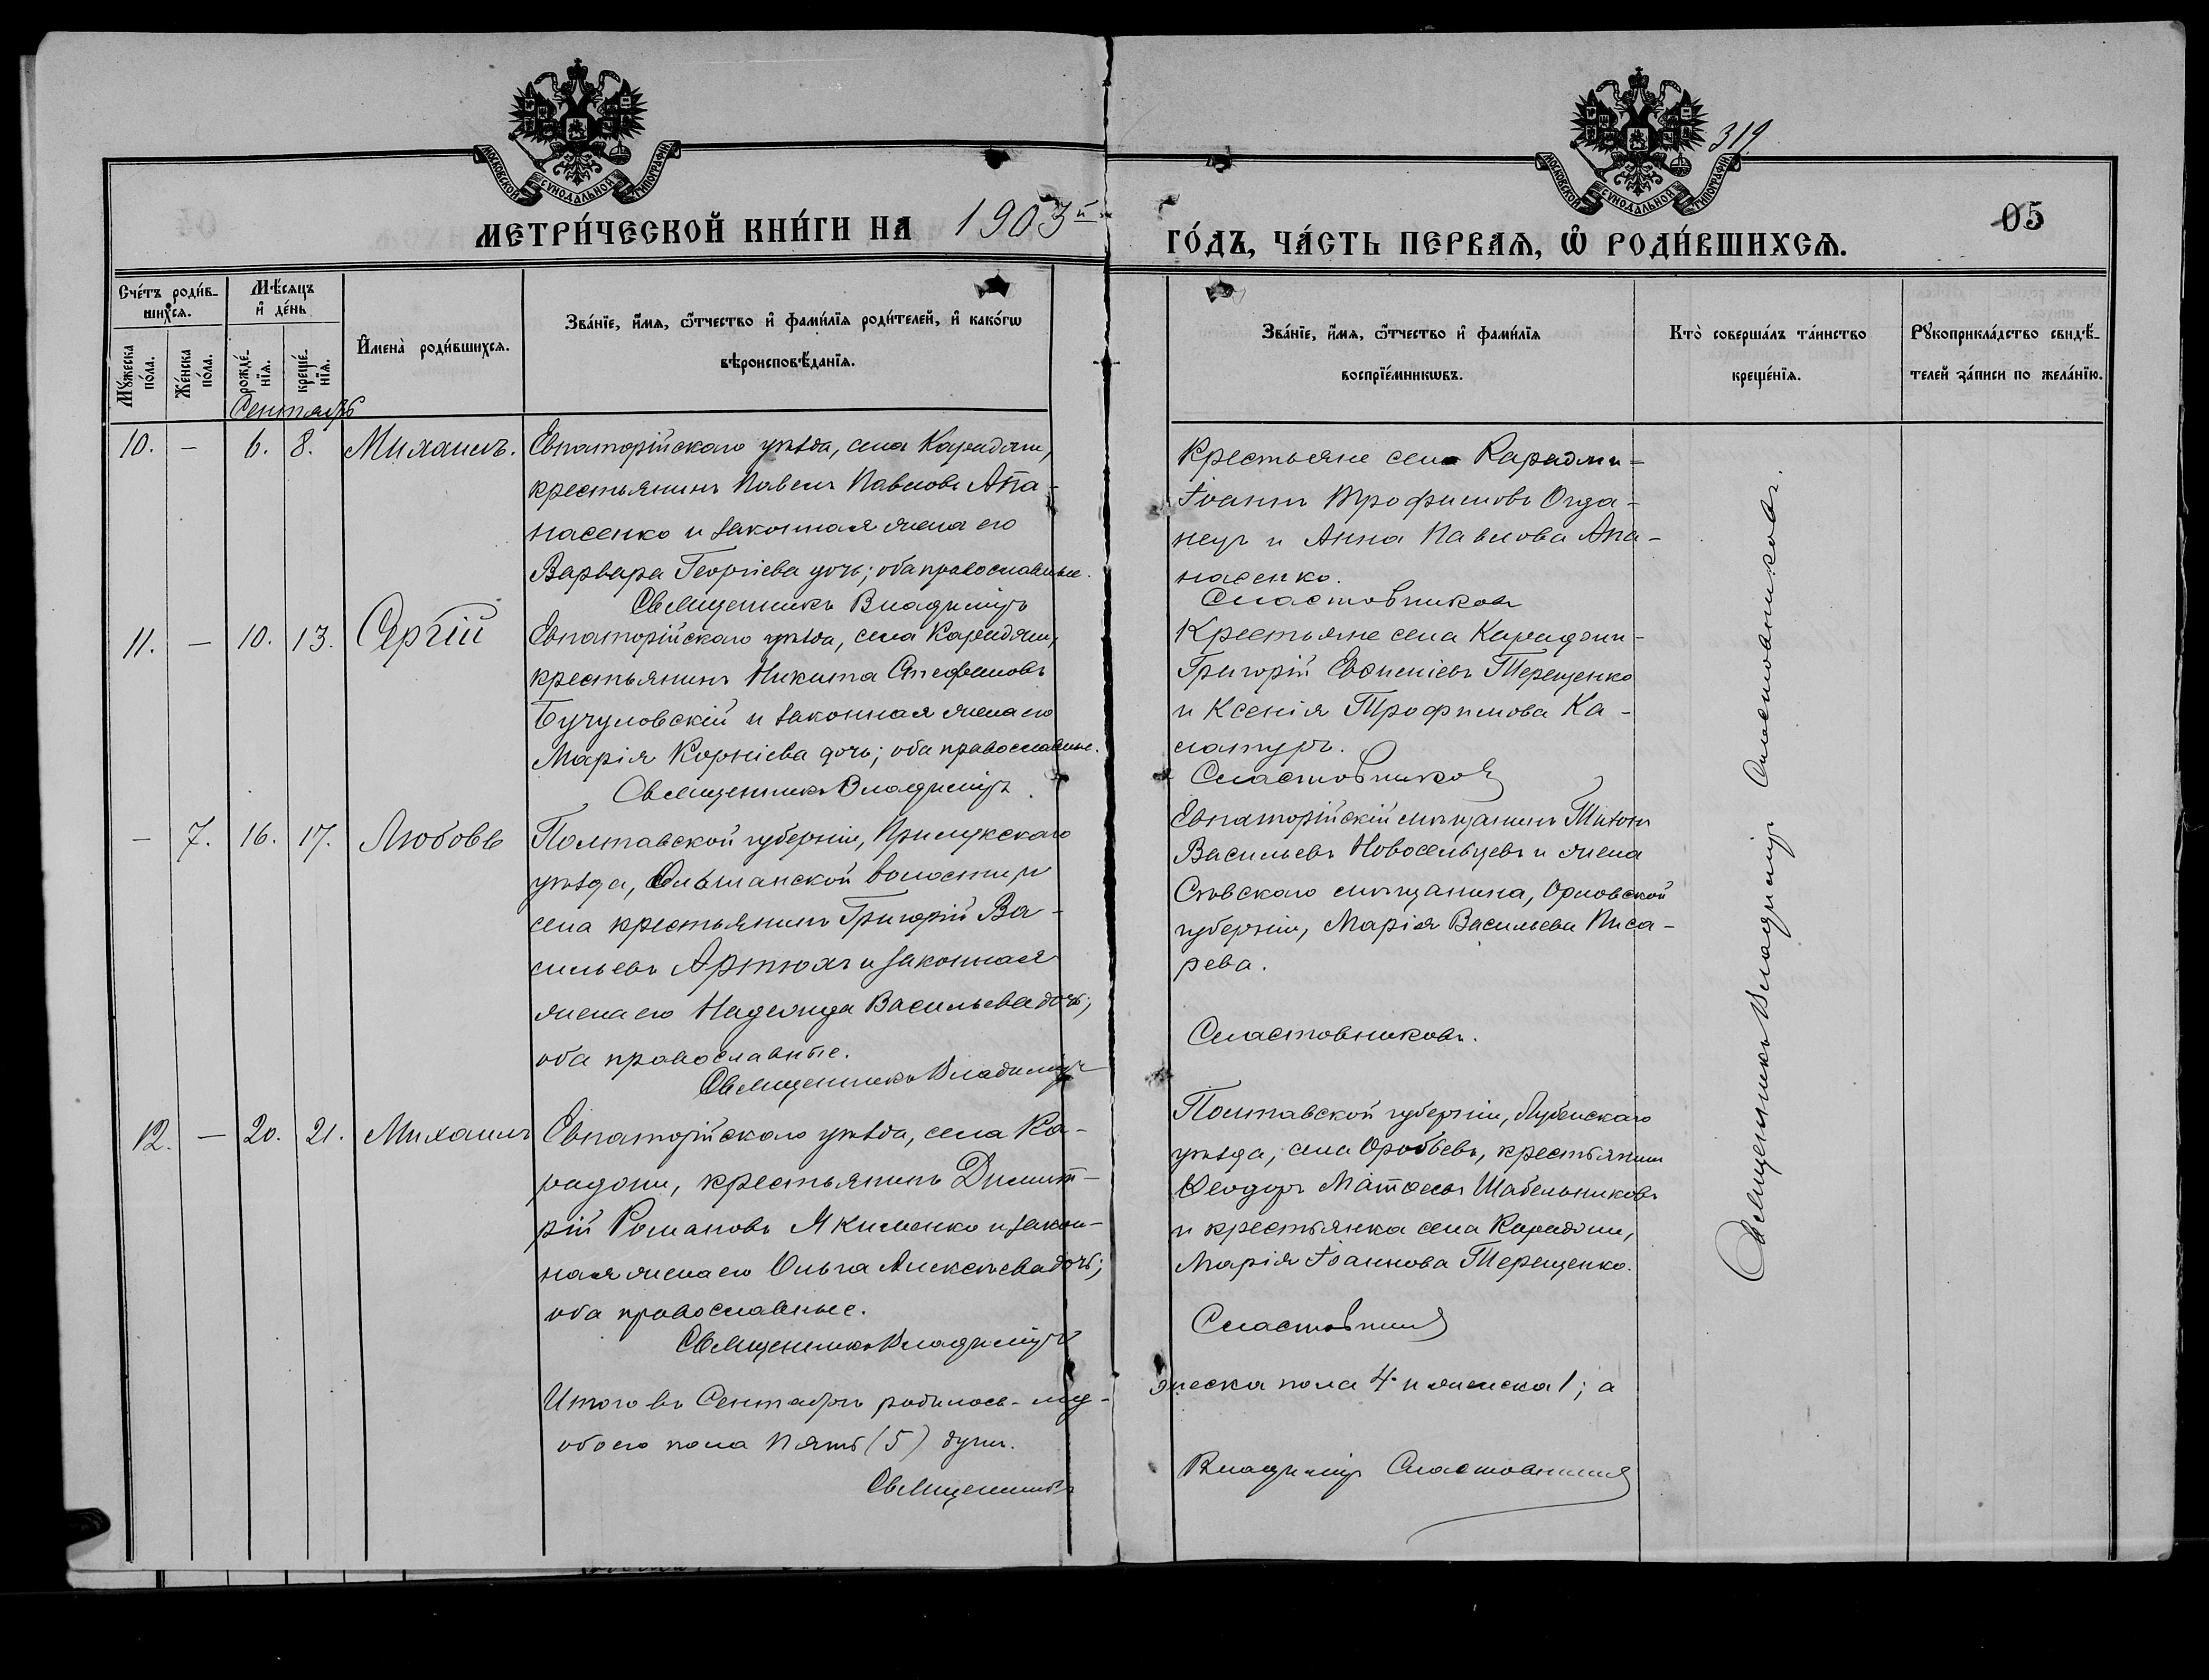 319
МОСКОВСКОЙ СУНОДАЛЬНОЙ ТИПОГРАФІИ
МОСКОВСКОЙ СУНОДАЛЬНОЙ ТИПОГРАФІИ
МЕТРИ́ЧЕСКОЙ КНИ́ГИ НА 1903й
ГО́ДЪ, ЧА́СТЬ ПЕРВАѦ, Ѡ҆ РОДИ́ВШИХСѦ.
05
Сче́тъ роди́в-
шихсѧ.
Мꙋ́жеска по́ла.
Же́нска по́ла.
Мѣ́сѧцъ
и҆ де́нь
рожде́-
нїѧ.
креще́-
нїѧ.
И҆мена̀ роди́вшихсѧ.
Зва́нїе, и҆́мѧ, ѻ҆́тчество и҆ фами́лїѧ роди́телей, и҆ како́гѡ
вѣроисповѣ́данїѧ.
Зва́нїе, и҆́мѧ, ѻ҆́тчество и҆ фами́лїѧ
воспрїе́мникѡвъ.
Кто̀ соверша́лъ та́инство
креще́нїѧ.
Рꙋкоприкла́дство свидѣ́-
телей за́писи по жела́нїю.
Сентябрь
10. — 6. 8. Михаилъ.
Евпаторійскаго уѣзда, села Караджи,
крестьянинъ Павелъ Павловъ Апа-
насенко и законная жена его
Варвара Георгіева дочь; оба православные.
Священникъ Владиміръ
Крестьяне села Караджи=
Іоаннъ Трофимовъ
и Анна Павлова Апа-
насенко.
Сластовниковъ
11. — 10. 13. Сергій
Евпаторійскаго уѣзда, села Караджи,
крестьянинъ Никита Стефановъ
Бучуловскій и законная жена его
Марія Корніева дочь; оба православные.
Священникъ Владиміръ
Крестьяне села Караджи-
Григорій Терещенко
и Ксенія Трофимова Ка-
латуръ.
Сластовниковъ
— 7. 16. 17. Любовь
Полтавской губерніи, Прилукскаго
уѣзда, Ольшанской волости и
села крестьянинъ Григорій Ва-
сильевъ Артюхъ и законная
жена его Надежда Васильева дочь;
оба православные.
Священникъ Владиміръ
Евпаторійскій мѣщанинъ Тихонъ
Васильевъ Новосельцевъ и жена
Сѣвскаго мѣщанина, Орловской
губерніи, Марія Васильева Писа-
рева.
Сластовниковъ.
12. — 20. 21. Михаилъ
Евпаторійскаго уѣзда, села Ка-
раджи, крестьянинъ Димит-
рій Романовъ Якименко и закон-
ная жена его Ольга Алексѣева дочь;
оба православные.
Священникъ Владиміръ
Полтавской губерніи, Лубенскаго
уѣзда, села крестьянинъ
Ѳеодоръ Шабельниковъ
и крестьянка села Караджи,
Марія Іоаннова Терещенко.
Сластовник
Священникъ Владиміръ Сластовниковъ.
Итого въ Сентябрѣ родилось- му-
жеска пола 4 и женска 1; а
обоего пола пять (5) душъ.
Священникъ
Владиміръ Сластовник